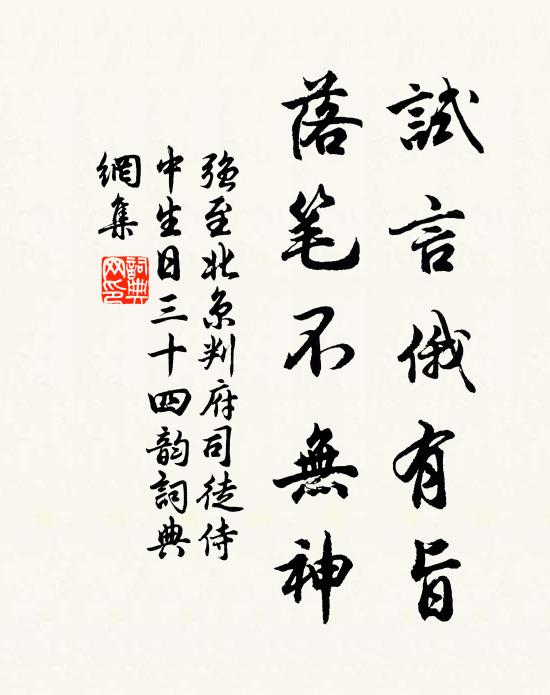 試言俄有旨
落笔不無神
強至北京判府司徒侍
中生日三十四韵詞典
網集
詞典
网印